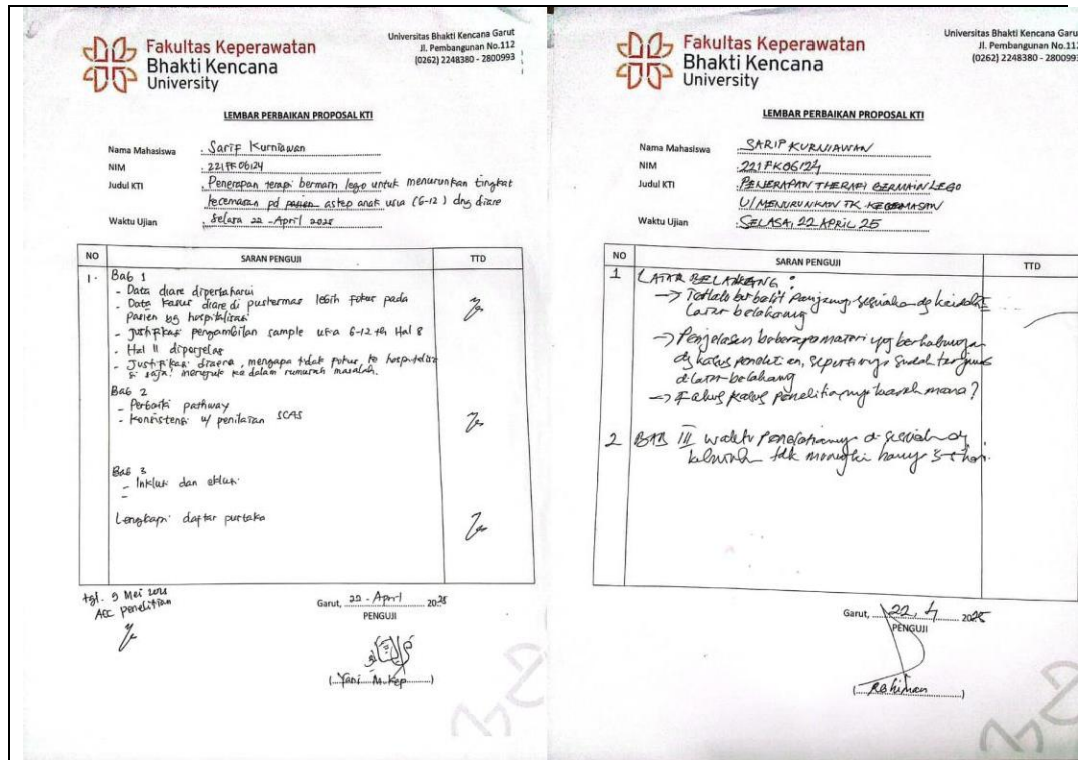 Fakultas Keperawatan
Bhakti Kencana
University
Universitas Bhakti Kencana Garut
Jl. Pembangunan No.112
(0262) 2248380 - 2800993
LEMBAR PERBAIKAN PROPOSAL KTI
Nama Mahasiswa : Sarif Kurniawan
NIM : 221FK06124
Judul KTI : Penerapan terapi bermain lego untuk menurunkan tingkat
kecemasan pd pasien askep anak usia (6-12) dng diare
Waktu Ujian : Selasa 22 - April 2025
NO SARAN PENGUJI TTD
1. Bab 1
- Data diare diperbaharui
- Data kasus diare di puskesmas lebih fokus pada
pasien yg hospitalisasi
- justifikasi pengambilan sample usia 6-12 th Hal 8
- Hal 11 diperjelas
- Justifikasi mengapa tidak fokus, to hospitalisa
si saja? merujuk ke dalam rumusan masalah.
Bab 2
- Perbaiki pathway
- Konsistensi u/ penilaian SCAS
Bab 3
- Inklusi dan eklusi
-
Lengkapi daftar pustaka
tgl. 9 Mei 2025
ACC penelitian
Garut, 22 - April 2025
PENGUJI
(Yani M.Kep)
Fakultas Keperawatan
Bhakti Kencana
University
Universitas Bhakti Kencana Garu
Jl. Pembangunan No.112
(0262) 2248380 - 2800993
LEMBAR PERBAIKAN PROPOSAL KTI
Nama Mahasiswa : SARIP KURNIAWAN
NIM : 221FK06124
Judul KTI : PENERAPAN THERAPI BERMAIN LEGO
U/ MENURUNKAN TK KECEMASAN
Waktu Ujian : SELASA, 22 APRIL 25
NO SARAN PENGUJI TTD
1 LATAR BELAKANG :
→ Terlalu berbelit panjang sesuaikan dg kaidah
Latar belakang
→ Penjelasan beberapa materi yg berhubungan
dg kasus penelitian, sepertinya sudah
di latar belakang
→ Fokus kasus penelitiannya mana?
2 BAB III waktu penelitiannya di sesuaikan dg
tdk mungkin hanya 3 hari.
Garut, 22, 4 2025
PENGUJI